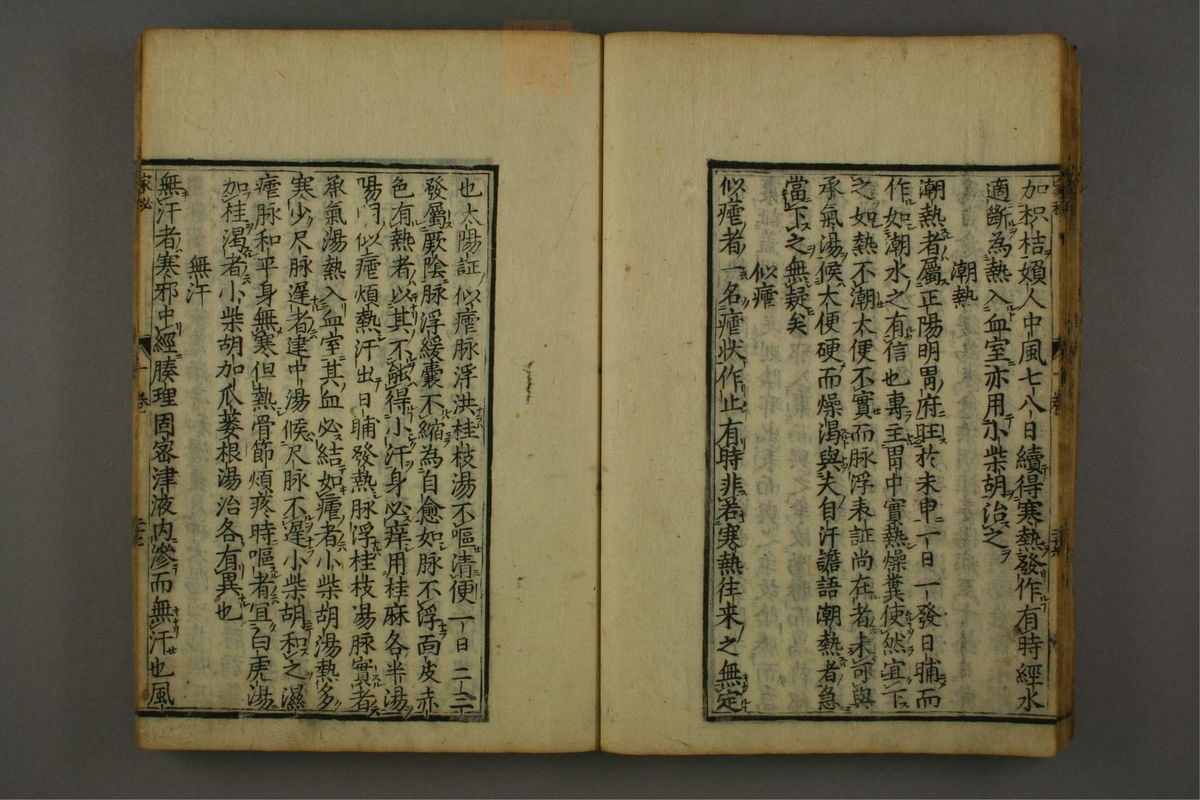 加枳桔婦人中風七八日續得寒熱發作有時經水
適斷為熱入血室亦用小柴胡治之
潮熱
潮熱者屬正陽明胃府旺於未申一日一發日晡而
作如潮水之有信也專主胃中實熱燥糞使然宜下
之如熱不潮大便不實而脉浮表証尚在者未可與
承氣湯候大便硬而燥渴與夫自汗譫語潮熱者急
當下之無疑矣
似瘧
似瘧者一名瘧狀作止有時非若寒熱往来之無定
也太陽証似瘧脉浮洪桂枝湯不嘔清便一日二三
發屬厥陰脉浮緩囊不縮為自愈如脉不浮面皮赤
色有熱者以其不能得小汗身必痒用桂麻各半湯
陽明似瘧煩熱汗出日晡發熱脉浮桂枝湯脉實者
承氣湯熱入血室其血必結如瘧者小柴胡湯熱多
寒少尺脉遲者建中湯候尺脉不遲小柴胡和之濕
瘧脉和平身無寒但熱骨節煩疼時嘔者宜白虎湯
加桂渴者小柴胡加瓜蔞根湯治各有異也
無汗
無汗者寒邪中經腠理固密津液内滲而無汗也風